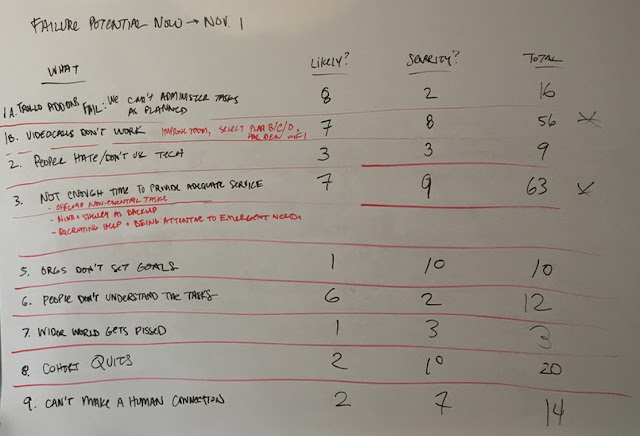 FAILURE POTENTIAL NOW → NOV. 1
WHAT LIKELY? SEVERITY? TOTAL
1A. TRELLO ADDONS FAIL: WE CAN'T ADMINISTER TASKS AS PLANNED 8 2 16
1B. VIDEOCALLS DON'T WORK IMPROVE ZOOM, SELECT PLAN B/C/D, 7 8 56
2. PEOPLE HATE/DON'T USE TECH 3 3 9
3. NOT ENOUGH TIME TO PROVIDE ADEQUATE SERVICE 7 9 63
- OFFLOAD NON-ESSENTIAL TASKS
- NINA + SHIRLEY AS BACKUP
- RECRUITING HELP + BEING ATTENTIVE TO EMERGENT NEEDS
5. ORGS DON'T SET GOALS 1 10 10
6. PEOPLE DON'T UNDERSTAND THE TASKS 6 2 12
7. WIDER WORLD GETS PISSED 1 3 3
8. COHORT QUITS 2 10 20
9. CAN'T MAKE A HUMAN CONNECTION 2 7 14